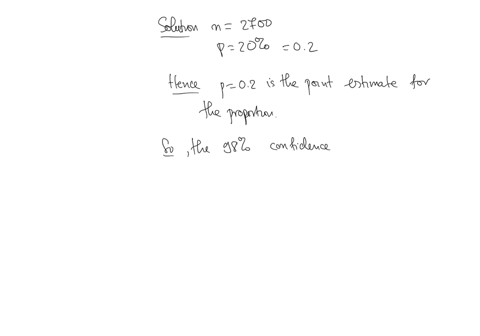 Solution n = 2700
p = 20% = 0.2
Hence p = 0.2 is the point estimate for
the proportion.
So, the 98% confidence